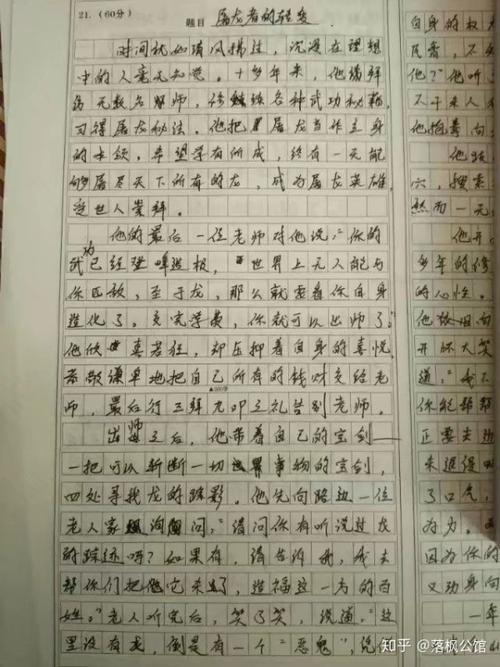 21.(60分)
题目 屠龙者的转变
时间就如清风拂过,沉浸在理想
中的人毫无知觉。十多年来,他遍拜
名师,修炼各种武功秘籍,
习得屠龙秘法。他把屠龙当作立身
的本领,希望学有所成,终有一天能
够屠尽天下所有的龙,成为屠龙英雄,
受世人崇拜。
他的最后一位老师对他说:“你的
武功已经登峰造极,世界上无人能与
你匹敌,至于龙,那么就要看你自身
造化了。交完学费,你就可以出师了。
他欣喜若狂,却压抑着自身的喜悦,
谦卑地把自己所有的钱财交给老
师,最后行三拜九叩之礼告别老师。
出师之后,他带着自己的宝剑——
一把可以斩断一切事物的宝剑,
四处寻找龙的踪影。他先向路边一位
老人家询问:“请问你有听说过龙
的踪迹吗?如果有,请告诉我,我去
帮你们把它来了,造福这一方的百
姓。”老人听完后,笑了笑,说道:“这
里没有龙,倒是有一个“恶鬼”,说的
自身的
民香,不
他?”他听
不干来人
他抱着
他
六,搜索
然而一无
他
多年的修
的心性。
他
开怀大笑
道,
你能帮
正要去
来
了口气,
有为。
因为你的
又功身
一年
知乎 @落枫公馆